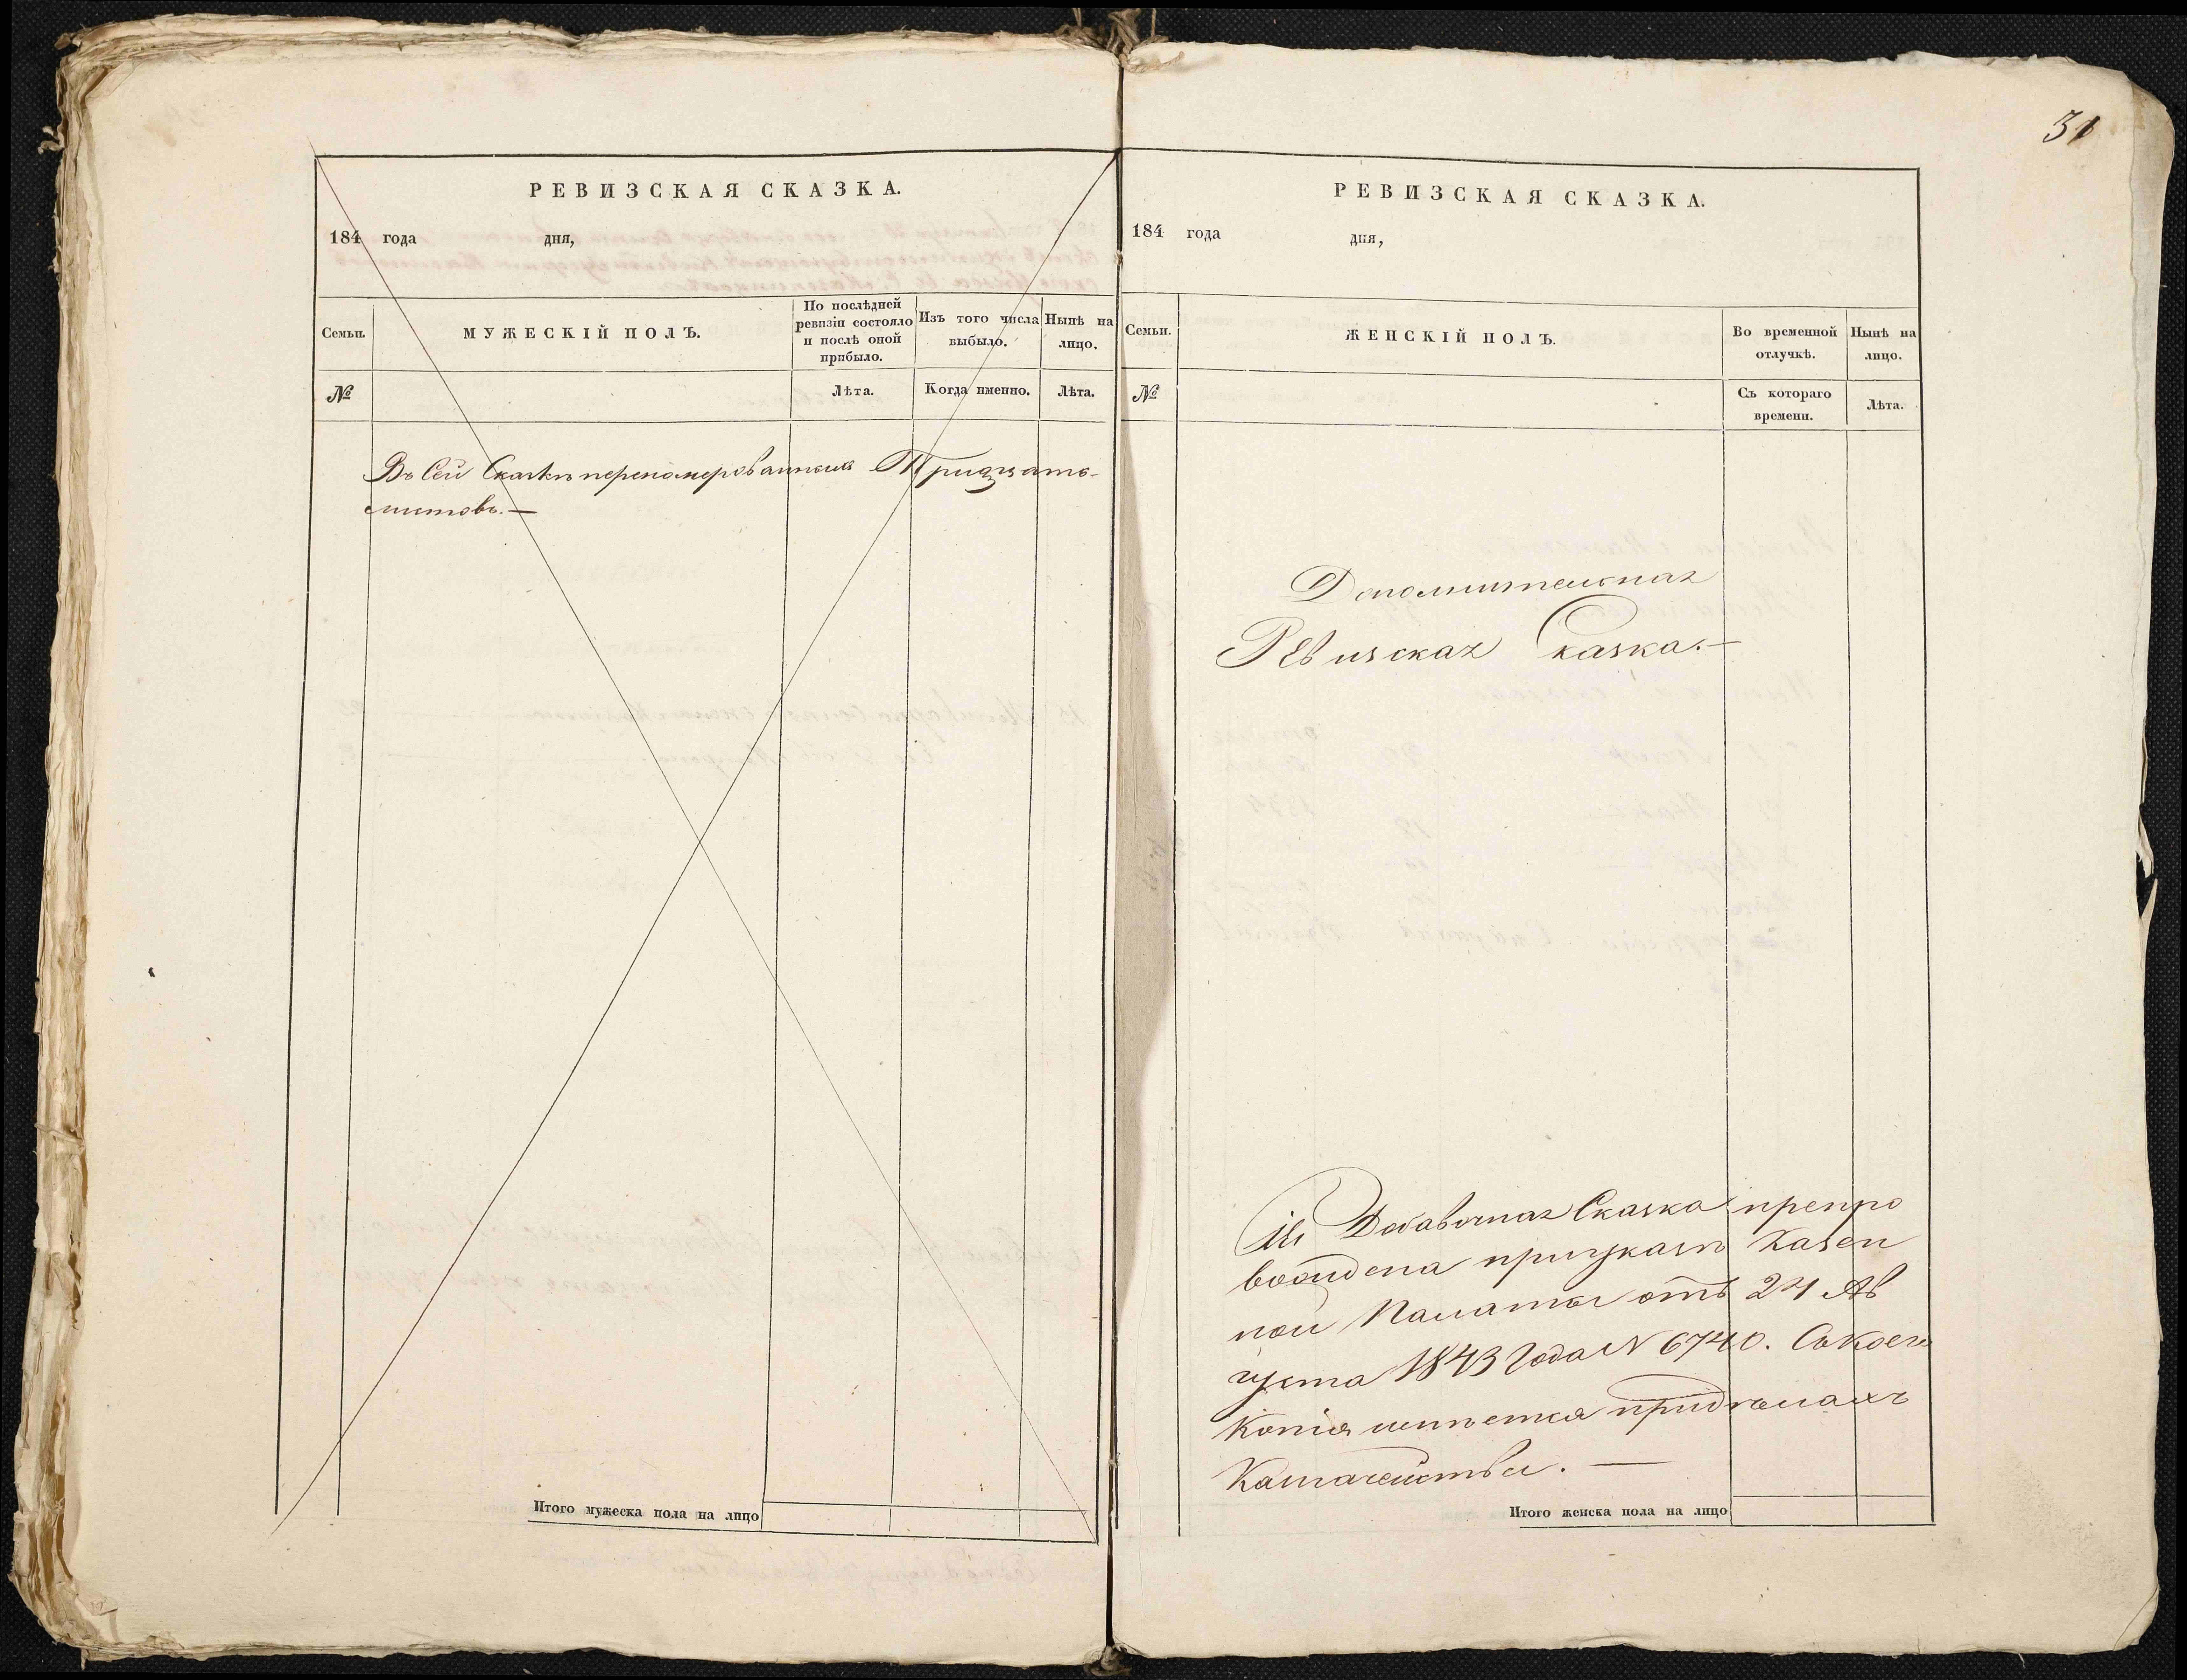 РЕВИЗСКАЯ СКАЗКА.
184 года дня,
Семьи. МУЖЕСКІЙ ПОЛЪ. По послѣдней ревизіи состояло и послѣ оной прибыло. Изъ того числа выбыло. Нынѣ на лицо.
№ Лѣта. Когда именно. Лѣта.
Въ Сей Сказкѣ перенумерованныхъ Тридцать
листовъ. —
Итого мужеска пола на лицо
31
РЕВИЗСКАЯ СКАЗКА.
184 года дня,
Семьи. ЖЕНСКІЙ ПОЛЪ. Во временной отлучкѣ. Нынѣ на лицо.
№ Съ котораго времени. Лѣта.
Дополнительная
Ревизская Сказка. —
Добавочная Сказка препро
вождена при указѣ Казен
ной Палаты отъ 24 Ав
густа 1843 Года N 6740. Съ коего
Копія имѣется при дѣлахъ
Казначейства. —
Итого женска пола на лицо